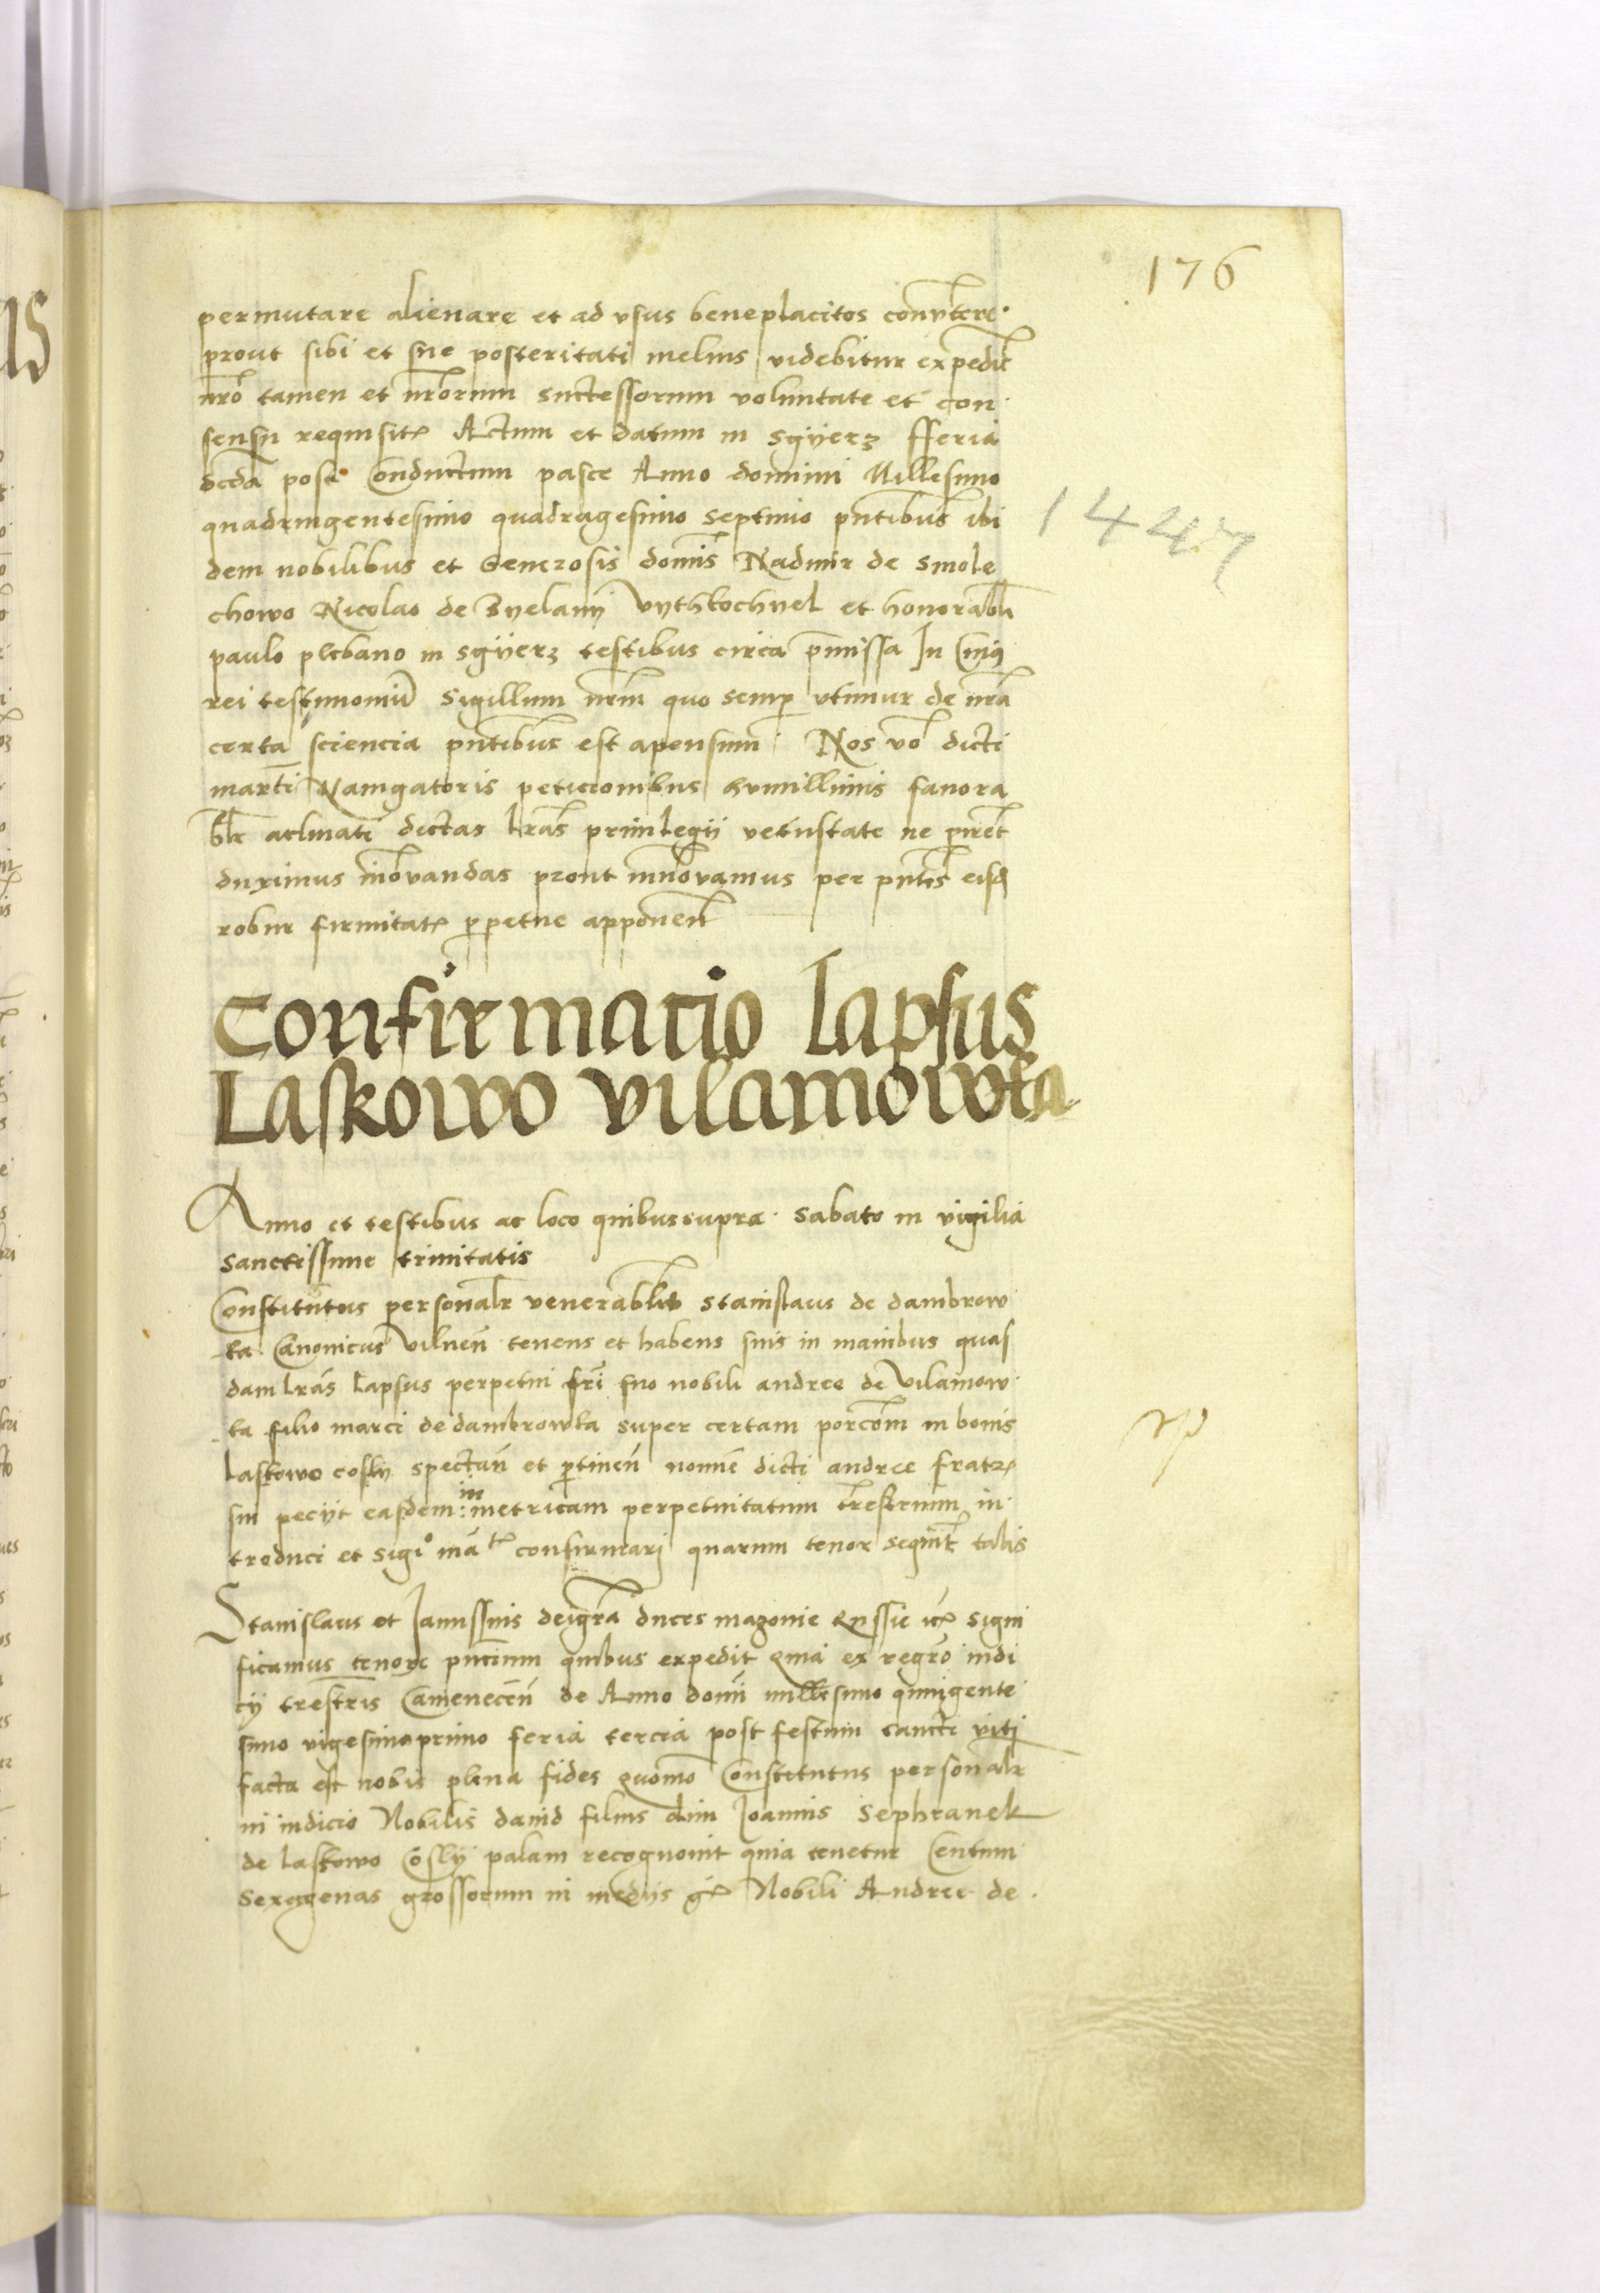 176
permutare alienare et ad vsus beneplacitos convtere
prout sibi et sue posteritati melius videbitur expedir
nro tamen et nrorum successorum voluntate et con
sensu requisit Actum et datum in Sgyerz fferia
scda post Conductum pasce Anno domini Millesimo
quadringentesimo quadragesimo septimo pntibus ibi
1447
dem nobilibus et Generosis domis Nadmir de Smole
chowo Nicolao de Byelawy Vythkochyel et honorabli
paulo plebano in Sgyerz testibus circa pmissa In Cuiq
rei testimoniu Sigillum nrm quo semp vtimur de nra
certa sciencia pntibus est apensum Nos vo dicti
marti Namgatoris peticionibus humillimis fauora
blr aclinati dictas lras priuilegij vetustate ne piret
duximus inovandas prout innovamus per pntes eisd
robur firmitat ppetue apponen
Confirmacio lapsus
Laskowo vilamowta
Anno et testibus ac loco quibus supra Sabato in vigilia
sanctissime trinitatis
Constitutus personalr venerablis Stanislaus de dambrow
ta Canonicus Vilnen tenens et habens suis in manibus quas
dam lras lapsus perpetui fri suo nobili andree de Vilamow
ta filio marci de dambrowta super certam porcom in bonis
rp
laskowo cosly spectan et ptinen nomine dicti andree fratr
sui peciit easdem in metricam perpetuitatum trestrium in
troduci et sigi ma confirmari quarum tenor sequit talis
Stanislaus et Janussius dei gra duces mazouie Russie etc signi
ficamus tenore pntium quibus expedit quia ex regro iudi
cij trestris Camenecen de Anno domi millesimo quingente
simo vigesimoprimo feria tercia post festum sancti viti
facta est nobis plena fides quomo Constitutus personalr
in iudicio Nobilis dauid filius olim Joannis Sephranek
de laskowo Cosly palam recognouit quia tenetur Centum
sexagenas grossorum in mediis gr Nobili Andree de